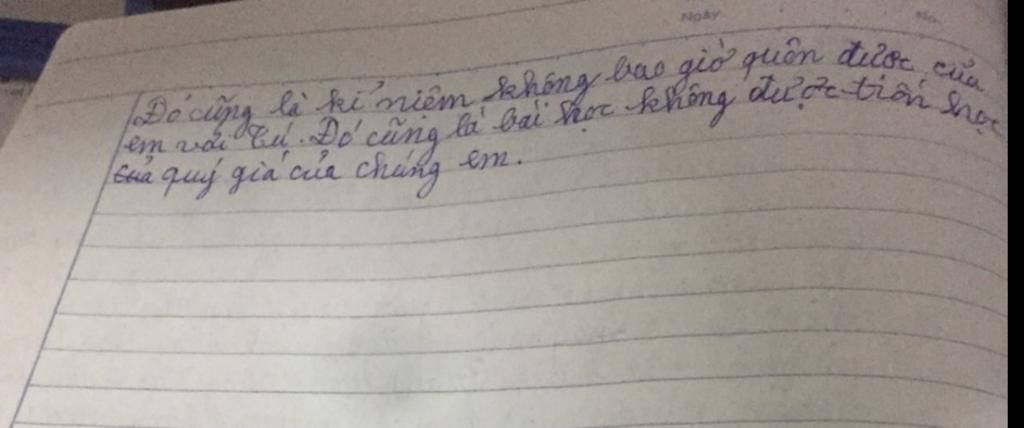 Ngày No.
Đó cũng là kỉ niệm không bao giờ quên được của
em với Tú. Đó cũng là bài học không được trốn học
quý giá của chúng em.